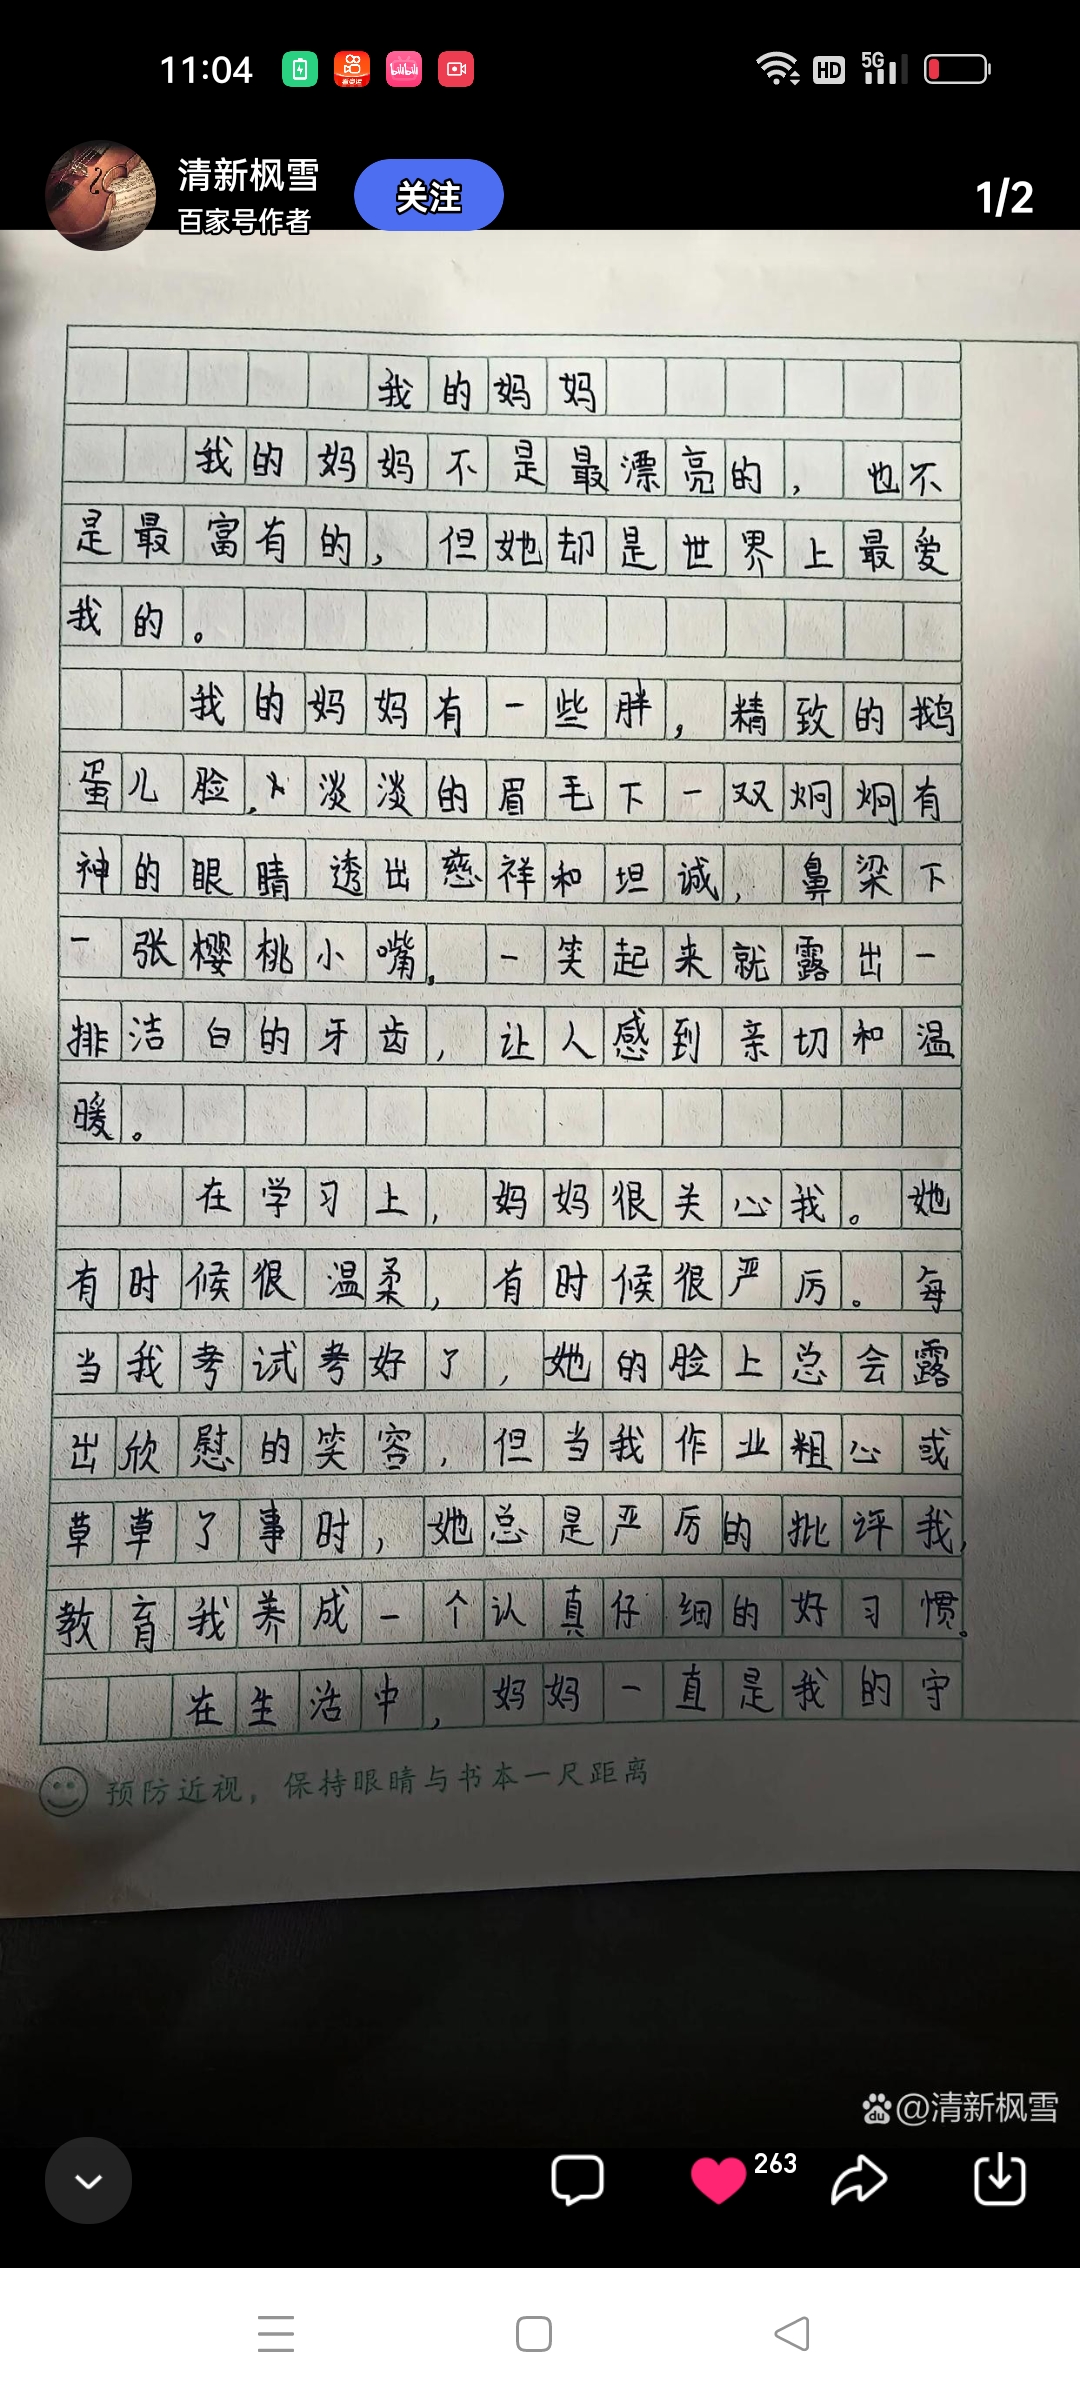 11:04
HD 5G
清新枫雪
百家号作者
关注
1/2
我的妈妈
我的妈妈不是最漂亮的，也不
是最富有的，但她却是世界上最爱
我的。
我的妈妈有一些胖，精致的鹅
蛋儿脸，淡淡的眉毛下一双炯炯有
神的眼睛透出慈祥和坦诚，鼻梁下
一张樱桃小嘴，一笑起来就露出一
排洁白的牙齿，让人感到亲切和温
暖。
在学习上，妈妈很关心我。她
有时候很温柔，有时候很严厉。每
当我考试考好了，她的脸上总会露
出欣慰的笑容，但当我作业粗心或
草草了事时，她总是严厉的批评我，
教育我养成一个认真仔细的好习惯。
在生活中，妈妈一直是我的守
预防近视，保持眼睛与书本一尺距离
@清新枫雪
263